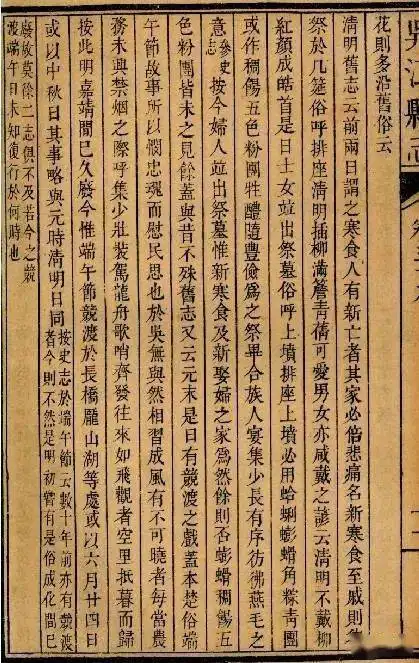 吳江縣志
花則多沿舊俗云
清明舊志云前兩日謂之寒食人有新亡者其家必倍悲痛名新寒食至戚則
祭於几筵俗呼排座清明插柳滿簷青蒨可愛男女亦咸戴之諺云清明不戴柳
紅顔成皓首是日士女並出祭墓俗呼上墳排座上墳必用蛤蜊蟛蜞角粽青團
或作稠餳五色粉團牲醴隨豐儉爲之祭畢合族人宴集少長有序彷彿燕毛之
意參史志按今婦人並出祭墓惟新寒食及新娶婦之家爲然餘則否蟛蜞稠餳五
色粉團皆未之見餘蓋與昔不殊舊志又云元末是日有競渡之戲蓋本楚俗端
午節故事所以憫忠魂而慰民思也於吳無與然相習成風有不可曉者每當農
務未興禁烟之際呼集少壯裝駕龍舟歌哨齊發往來如飛觀者空里抵暮而歸
按此明嘉靖間已久廢今惟端午節競渡於長橋龎山湖等處或以六月廿四日
或以中秋日其事略與元時清明日同按史志於端午節云數十年前亦有競渡
者今則不然是明初嘗有是俗成化間已
廢故莫徐二志俱不及若今之競
渡端午日未知復行於何時也